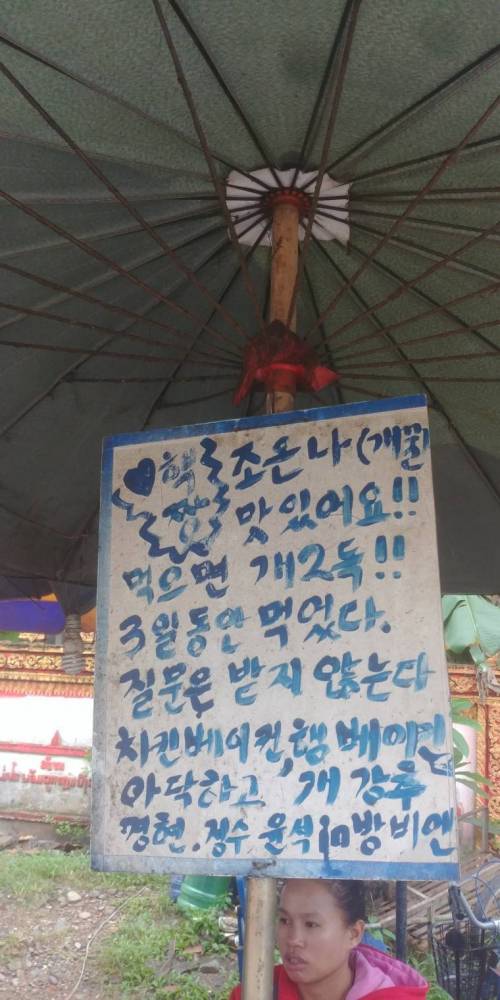 핵 조온나 (개꿀)
짱 맛있어요!!
먹으면 개2득!!
3일동안 먹었다.
질문은 받지 않는다
치킨베이컨, 햄베이컨
아닥하고 '개강추
경현. 정수 윤석 in 방비엔